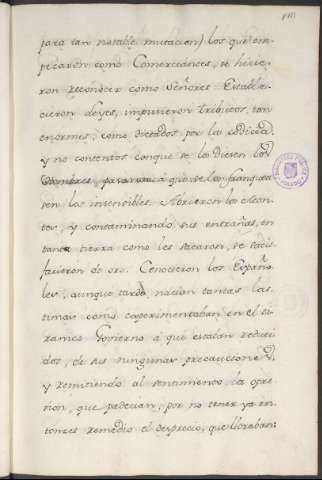 para tan notable mutacion) los que em-
pezaron como Comerciantes, se hicie-
ron reconocer como Señores. Estable-
cieron Leyes, impusieron tributos, tan
enormes, como dictados por la codicia,
y no contentos con que se la diesen los
hombres, pasaron á que se la franquea-
sen los insensibles. Abrieron los Mon-
tes, y contaminando sus entrañas, en
tanta tierra como les sacaron, se sacia-
facieron de oro. Conocieron los Españo-
les, aunque tarde, nacian tantas las-
timas como experimentaban en el ti-
ranico Govierno á que estaban reduci-
dos, de sus ningunas precauciones,
y remitiendo al sentimiento la opre-
sion, que padecian, por no tener ya en-
tonces remedio el desprecio, que lloraban: